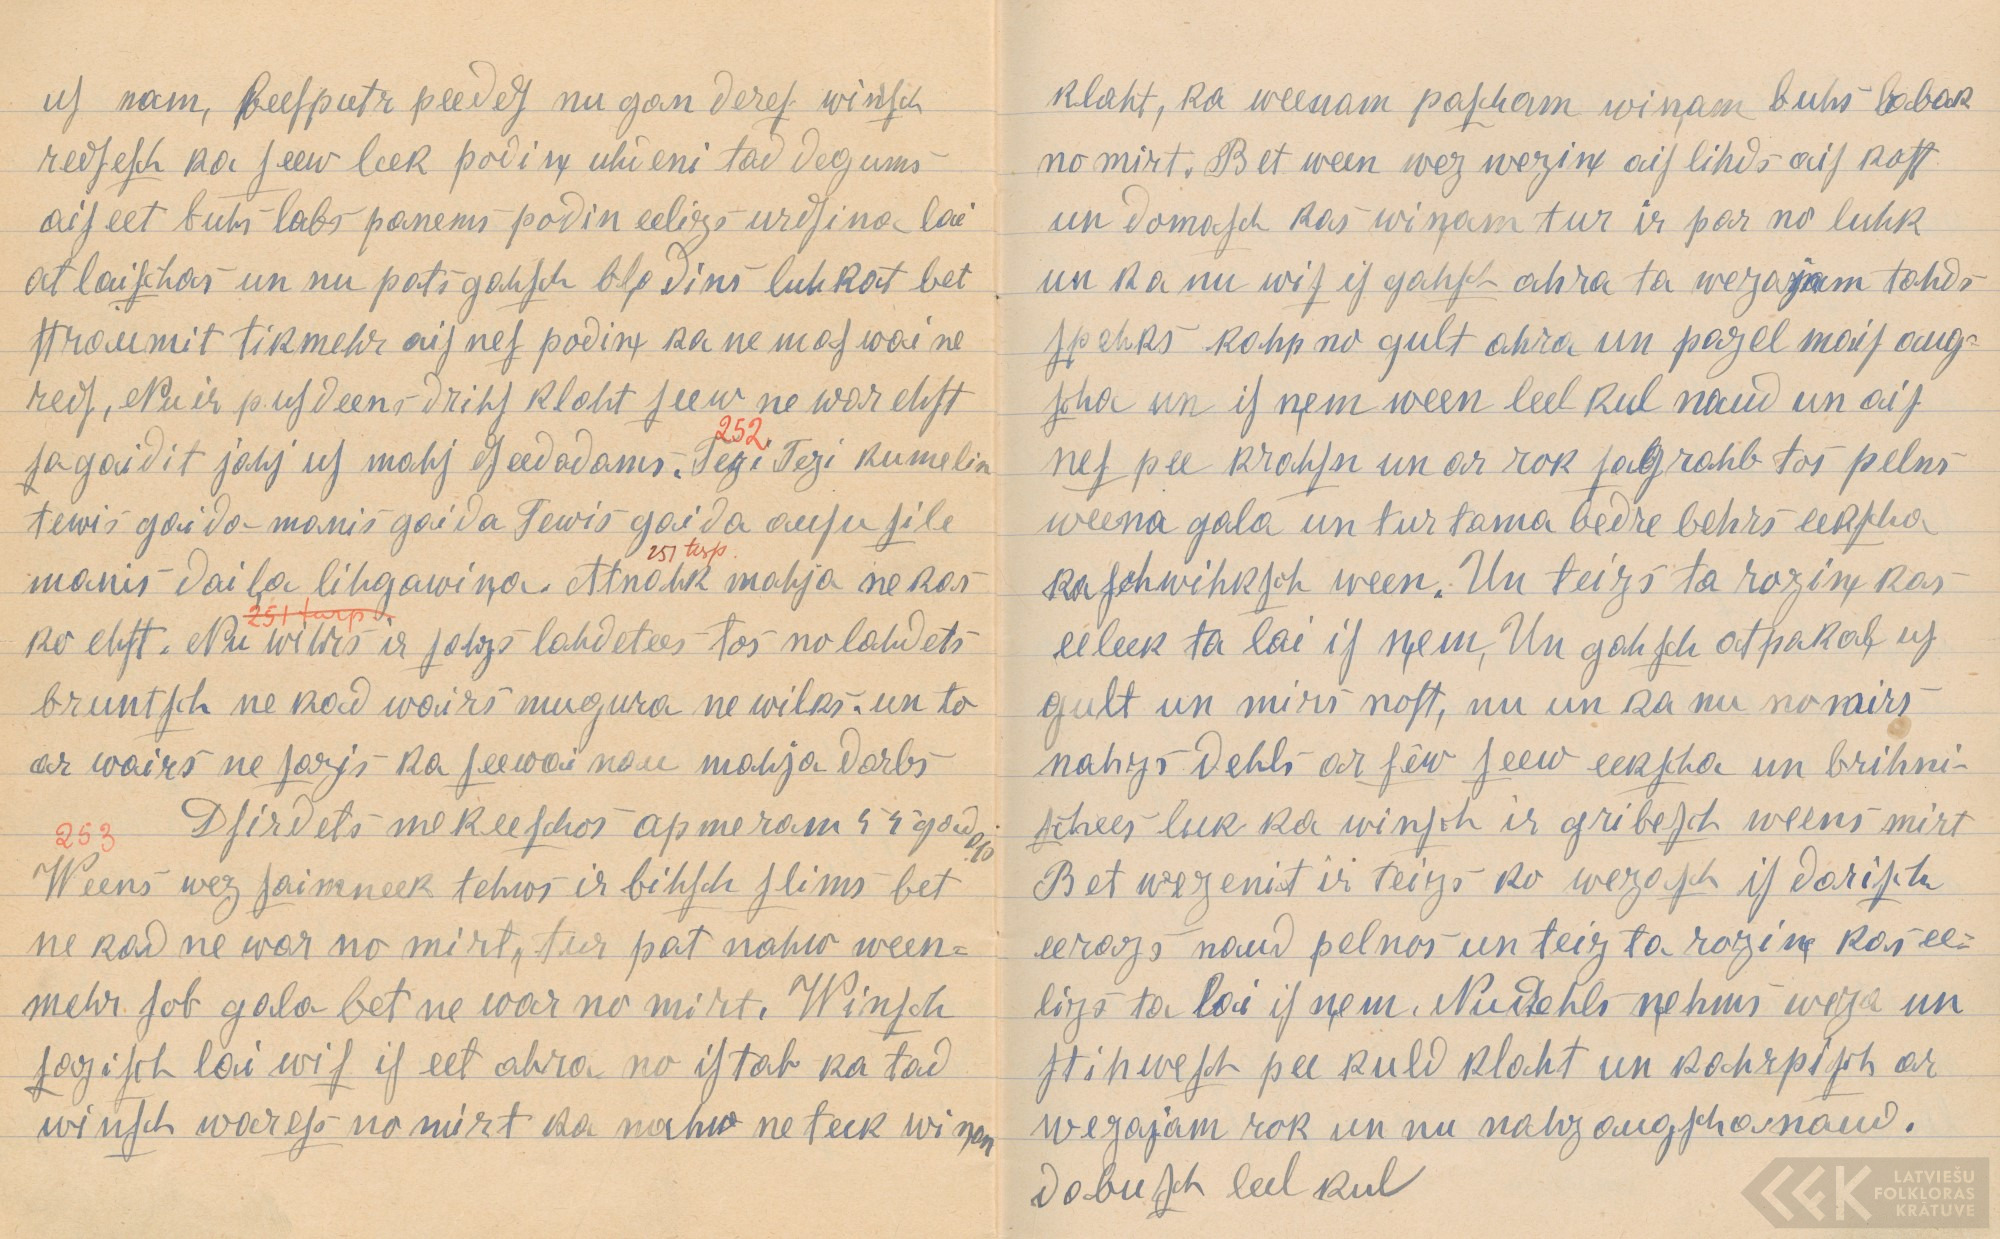 uſ nam, beeſputr peedeſ nu gan dereſ winſch
redſeſch ka ſeew leek podiņ uhdeni tad degums
aiſeet buhs labs panems podin eelizs urdſina lai
atlaiſchas un nu pats gahſch blodins luhkot bet
ſtraumit tikmehr aiſneſ podiņ ka ne maſ wai ne
redſ, Nu ir puſdeens drihſ klaht ſeew ne war ehſt
252
ſagaidit jahj uſ mahj dſeedadams. Tezi Tezi kumelin
tewis gaida manis gaida Tewis gaida auſu ſile
251 turp.
manis daiļa lihgawiņa. Atnahk mahja ne kas
251 turp.
ko ehſt. Nu wihrs ir ſahzs lahdetees tos no lahdets
bruntſch ne kad wairs mugura ne wilks. un to
ar wairs ne ſazis ka ſeewai nau mahja darbs
Dſirdets mekeeſchos apmeram 45 gad
253
Weens wez ſaimneek tehws ir bihſch ſlims bet
ne kad ne war no mirt, tur pat nahw ween=
mehr ſob gala bet ne war no mirt. Winſch
ſaziſch lai wiſ iſ eet ahra no iſtab ka tad
winſch wareſs no mirt ka nahw ne teek wiņan
klaht, ka weenam paſcham wiņam buhs labak
no mirt. Bet ween wez weziņ aiſ lihds aiſ kaſt
un domaſch kas wiņam tur ir par no luhk
un ka nu wiſ iſ gahſch ahra ta wezajam tahds
ſpehks kahp no gult ahra un pazel maiſ aug=
ſcha un iſ ņem ween leel kul naud un aiſ
neſ pee krahſn un ar rok ſagrahb tos pelns
weena gala un tur tama bedre behrs eekſcha
ka ſchwihkſch ween. Un teizs ta roziņ kas
eeleek ta lai iſ ņem, Un gahſch atpakaļ uſ
gult un mirs noſt, nu un ka nu nomirs
nahzs dehls ar ſew ſeew eekſcha un brihni-
ſchees luk ka winſch ir gribeſch weens mirt
Bet wezenit ir teizs ko wezaſch iſ dariſch
eerazs naud pelnos un teiz ta roziņ kas ee=
lizs ta lai iſ ņem. Nu dehls ņehms weza un
ſtihweſch pee kuld klaht un kahrpiſch ar
wezajam rok un nu nahz augſcha naud.
dabuſch leel kul
LATVIEŠU
FOLKLORAS
KRĀTUVE